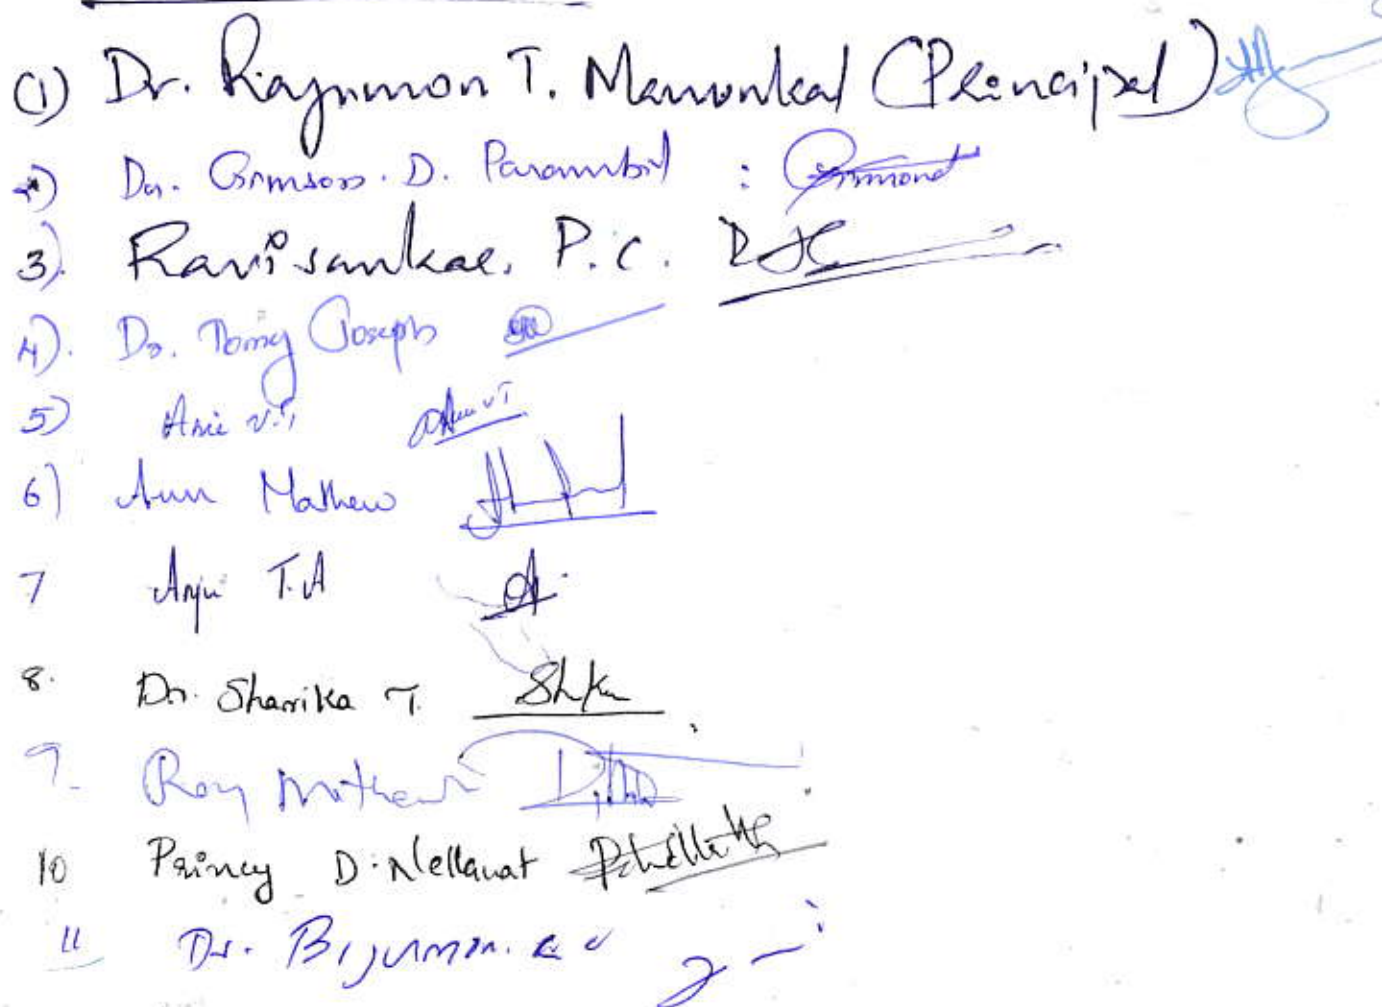 (1) Dr. Rajumon T. Mavunkal (Principal)
2) Dr. Gimson. D. Parambil :
3). Ravisankar. P.C.
4). Dr. Tomy Joseph
5) Anie V.T
6) Ann Mathew
7 Anju T.A
8. Dr. Sharika T.
9. Roy Mathew
10 Princy D. Nellanat
11 Dr. Bijumon.